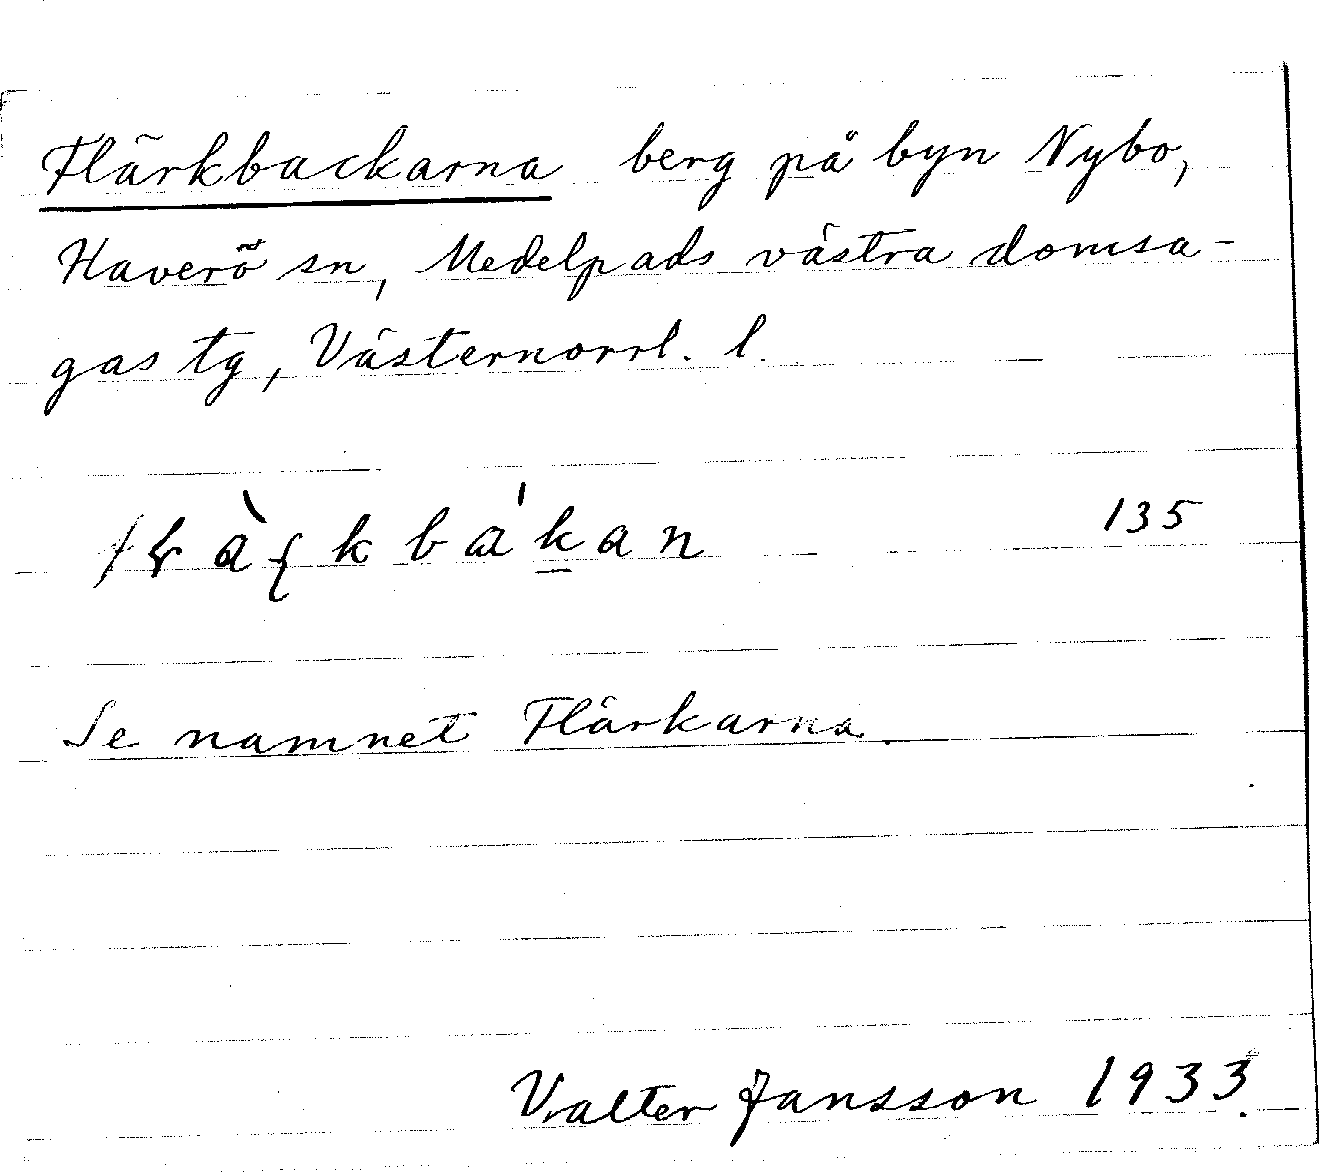 Flärkbackarna berg på byn Nybo,
Haverö sn, Medelpads västra domsa-
gas tg, Västernorrl. l.
135
Se namnet Flärkarna.
Valter Jansson 1933.